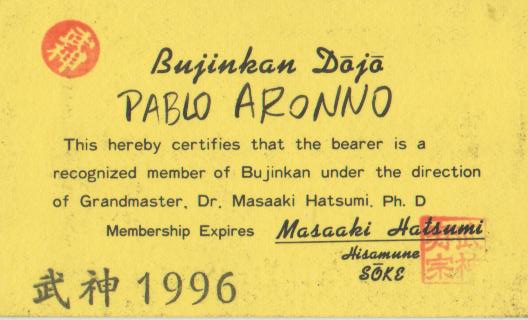 武神
Bujinkan Dōjō
PABLO ARONNO
This hereby certifies that the bearer is a
recognized member of Bujinkan under the direction
of Grandmaster, Dr. Masaaki Hatsumi, Ph. D
Membership Expires Masaaki Hatsumi
Hisamune
SŌKE
武神 1996